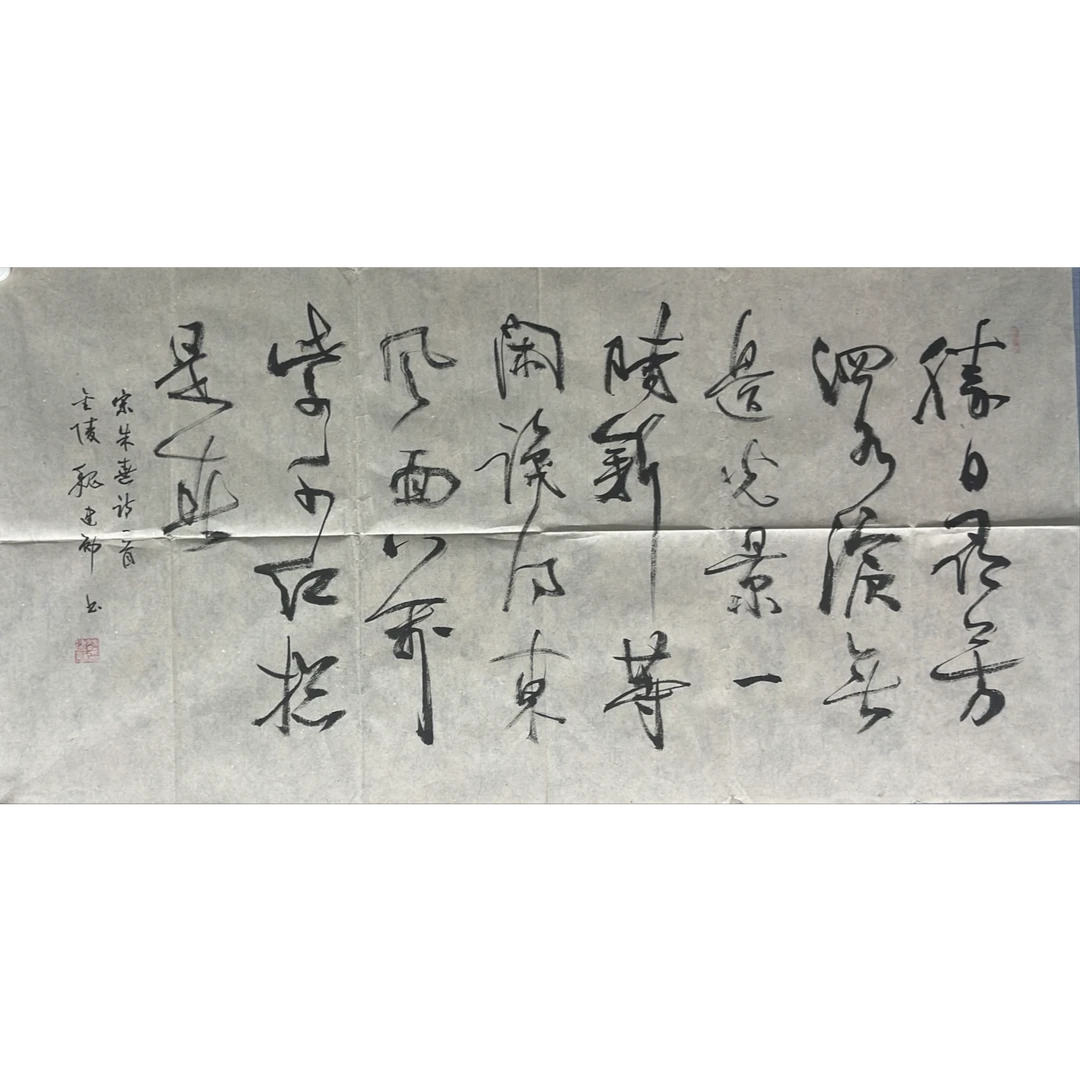 勝日尋芳
泗水濱無
邊光景一
時新等
閑識得東
風面萬
紫千紅總
是春
宋朱熹詩一首
金陵魏建書